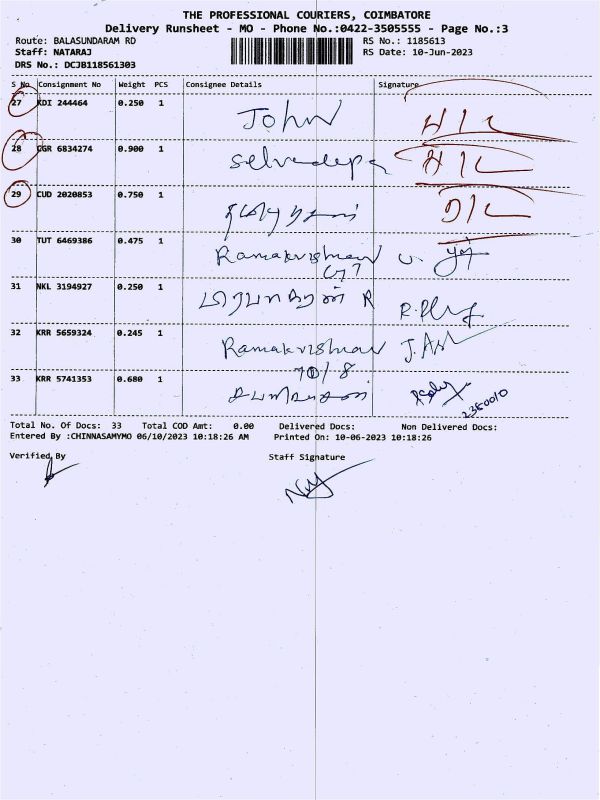 THE PROFESSIONAL COURIERS, COIMBATORE
Delivery Runsheet - MO - Phone No.:0422-3505555 - Page No.:3
Route: BALASUNDARAM RD RS No.: 1185613
Staff: NATARAJ RS Date: 10-Jun-2023
DRS No.: DCJB118561303
S No Consignment No Weight PCS Consignee Details Signature
27 KDI 244464 0.250 1 John
28 GGR 6834274 0.900 1
29 CUD 2020853 0.750 1
30 TUT 6469386 0.475 1 Ramakrishnan
31 NKL 3194927 0.250 1
32 KRR 5659324 0.245 1 Ramakrishnan
33 KRR 5741353 0.680 1
Total No. Of Docs: 33 Total COD Amt: 0.00 Delivered Docs: Non Delivered Docs:
Entered By :CHINNASAMYMO 06/10/2023 10:18:26 AM Printed On: 10-06-2023 10:18:26
Verified By Staff Signature